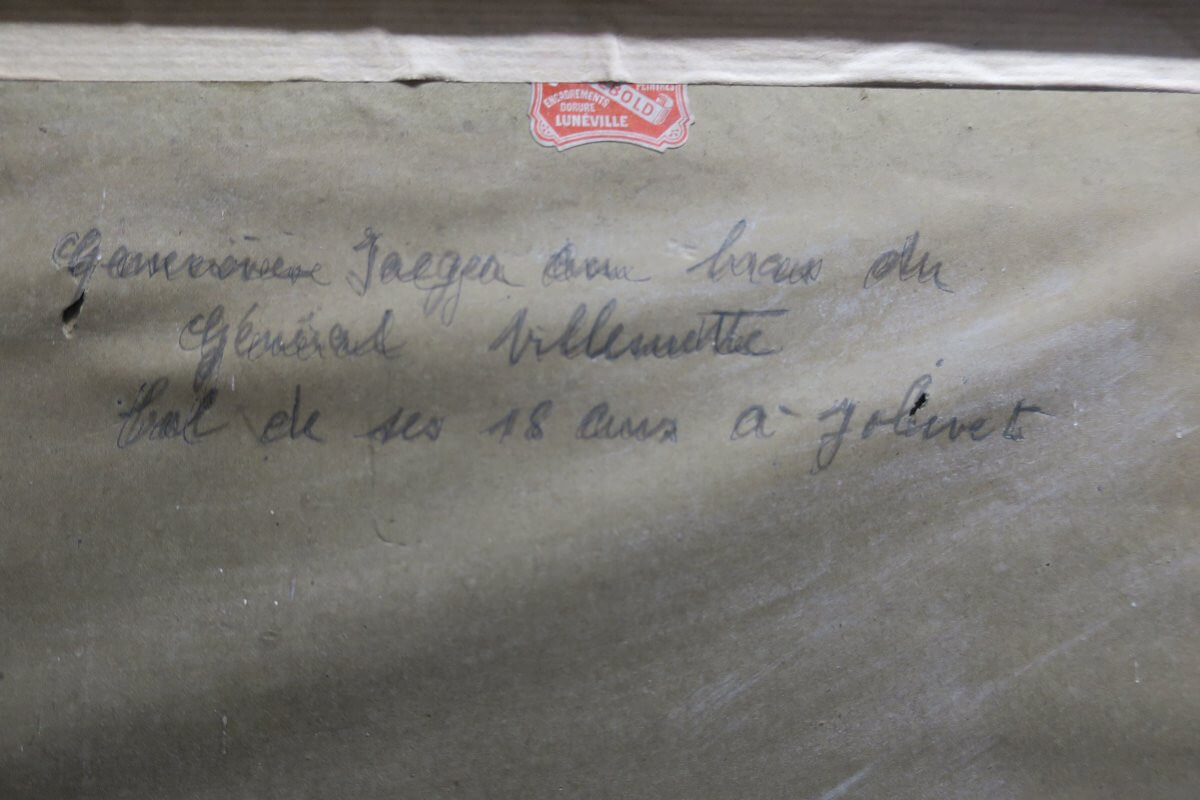 PEINTRES
BOLD
ENCADREMENTS
DORURE
LUNÉVILLE
Geneviève Jaeger au bras du
Général Villemette
bal de ses 18 ans à Jolivet